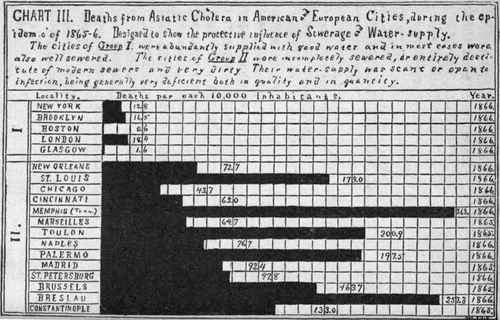 CHART III. Deaths from Asiatic Cholera in American & European Cities, during the ep-
idem.c of 1865-6. Designed to show the protective influence of Sewerage & Water-supply.
The cities of Group I. were abundantly supplied with good water and in most cases were
also well sewered. The cities of Group II were incompletely sewered, or entirely desti-
tute of modern sewers and very dirty. Their water-supply was scant or open to
infection, being generally very deficient both in quality and in quantity.
Locality. Deaths per each 10,000 Inhabitants. Year.
I
NEW YORK 12.8 1866.
BROOKLYN 11.5 1866.
BOSTON 0.6 1866.
LONDON 18.4 1866.
GLASGOW 1.6 1866.
II.
NEW ORLEANS 72.7 1866.
ST. LOUIS 173.0 1866.
CHICAGO 43.7 1866.
CINCINNATI 62.0 1866.
MEMPHIS (Tenn.) 1866.
MARSEILLES 64.7 1865.
TOULON 200.9 1865.
NAPLES 76.7 1866.
PALERMO 197.5 1866.
MADRID 92.4 1865.
ST. PETERSBURG 97.8 1866.
BRUSSELS 163.7 1865.
BRESLAU 257.3 1866.
CONSTANTINOPLE 133.0 1865.